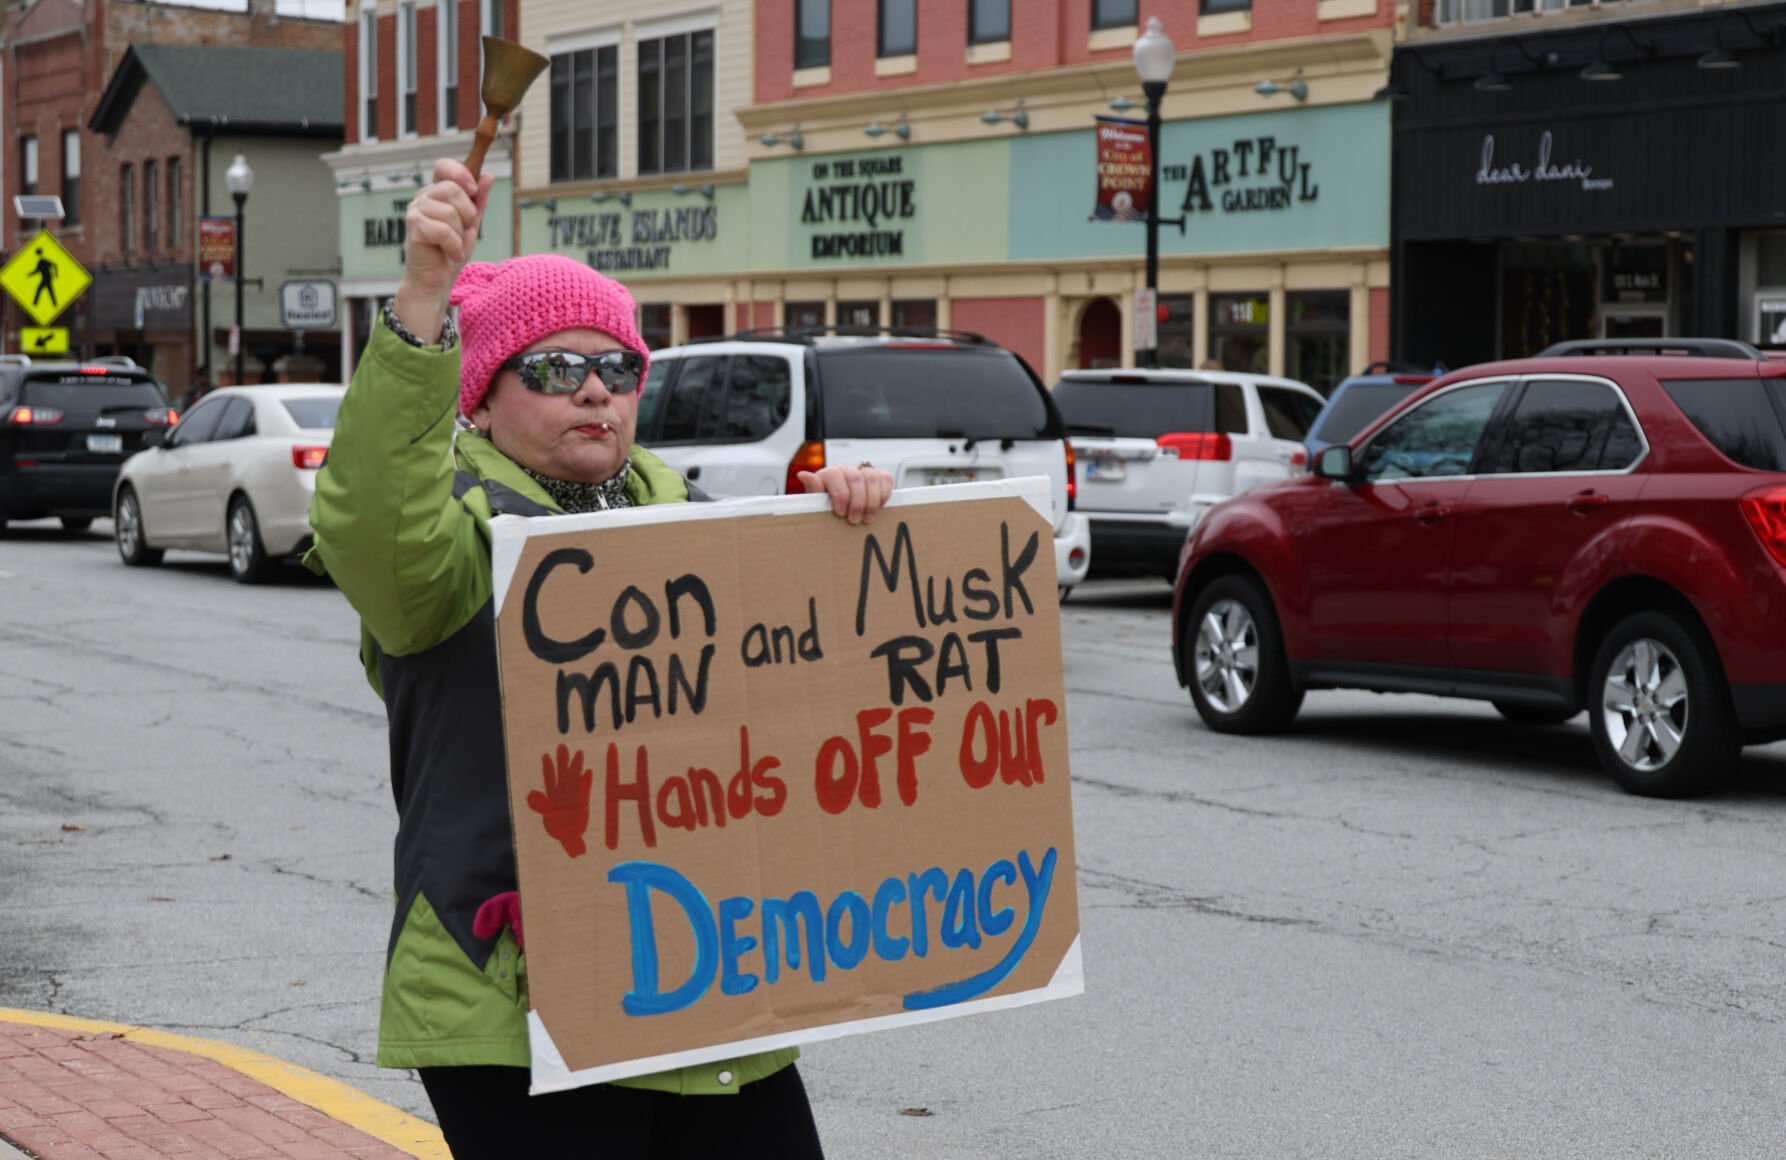 ON THE SQUARE
ANTIQUE
EMPORIUM
TWELVE ISLANDS
RESTAURANT
THE ARTFUL
GARDEN
Welcome
to the
City of
CROWN
POINT
dear dani
Realest
118
Jeep
Con and Musk
MAN RAT
Hands OFF Our
Democracy